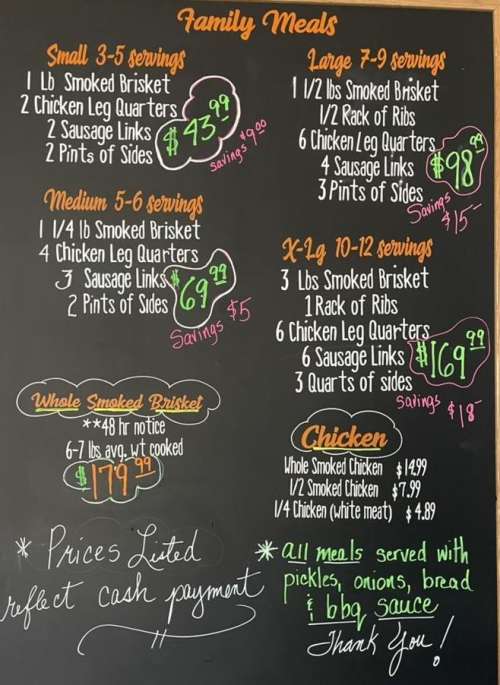 Family Meals
Small 3-5 servings
1 Lb Smoked Brisket
2 Chicken Leg Quarters
2 Sausage Links
2 Pints of Sides
$43.99
Savings $9.00
Medium 5-6 servings
1 1/4 lb Smoked Brisket
4 Chicken Leg Quarters
3 Sausage Links
2 Pints of Sides
$69.99
Savings $5
Whole Smoked Brisket
**48 hr notice
6-7 lbs avg. wt cooked
$179.99
* Prices Listed
reflect cash payment
Large 7-9 servings
1 1/2 lbs Smoked Brisket
1/2 Rack of Ribs
6 Chicken Leg Quarters
4 Sausage Links
3 Pints of Sides
$98.99
Savings
$15-
X-Lg 10-12 servings
3 Lbs Smoked Brisket
1 Rack of Ribs
6 Chicken Leg Quarters
6 Sausage Links
3 Quarts of sides
$169.99
Savings $18-
Chicken
Whole Smoked Chicken $14.99
1/2 Smoked Chicken $7.99
1/4 Chicken (white meat) $4.89
* all meals served with
pickles, onions, bread
& bbq sauce
Thank You!